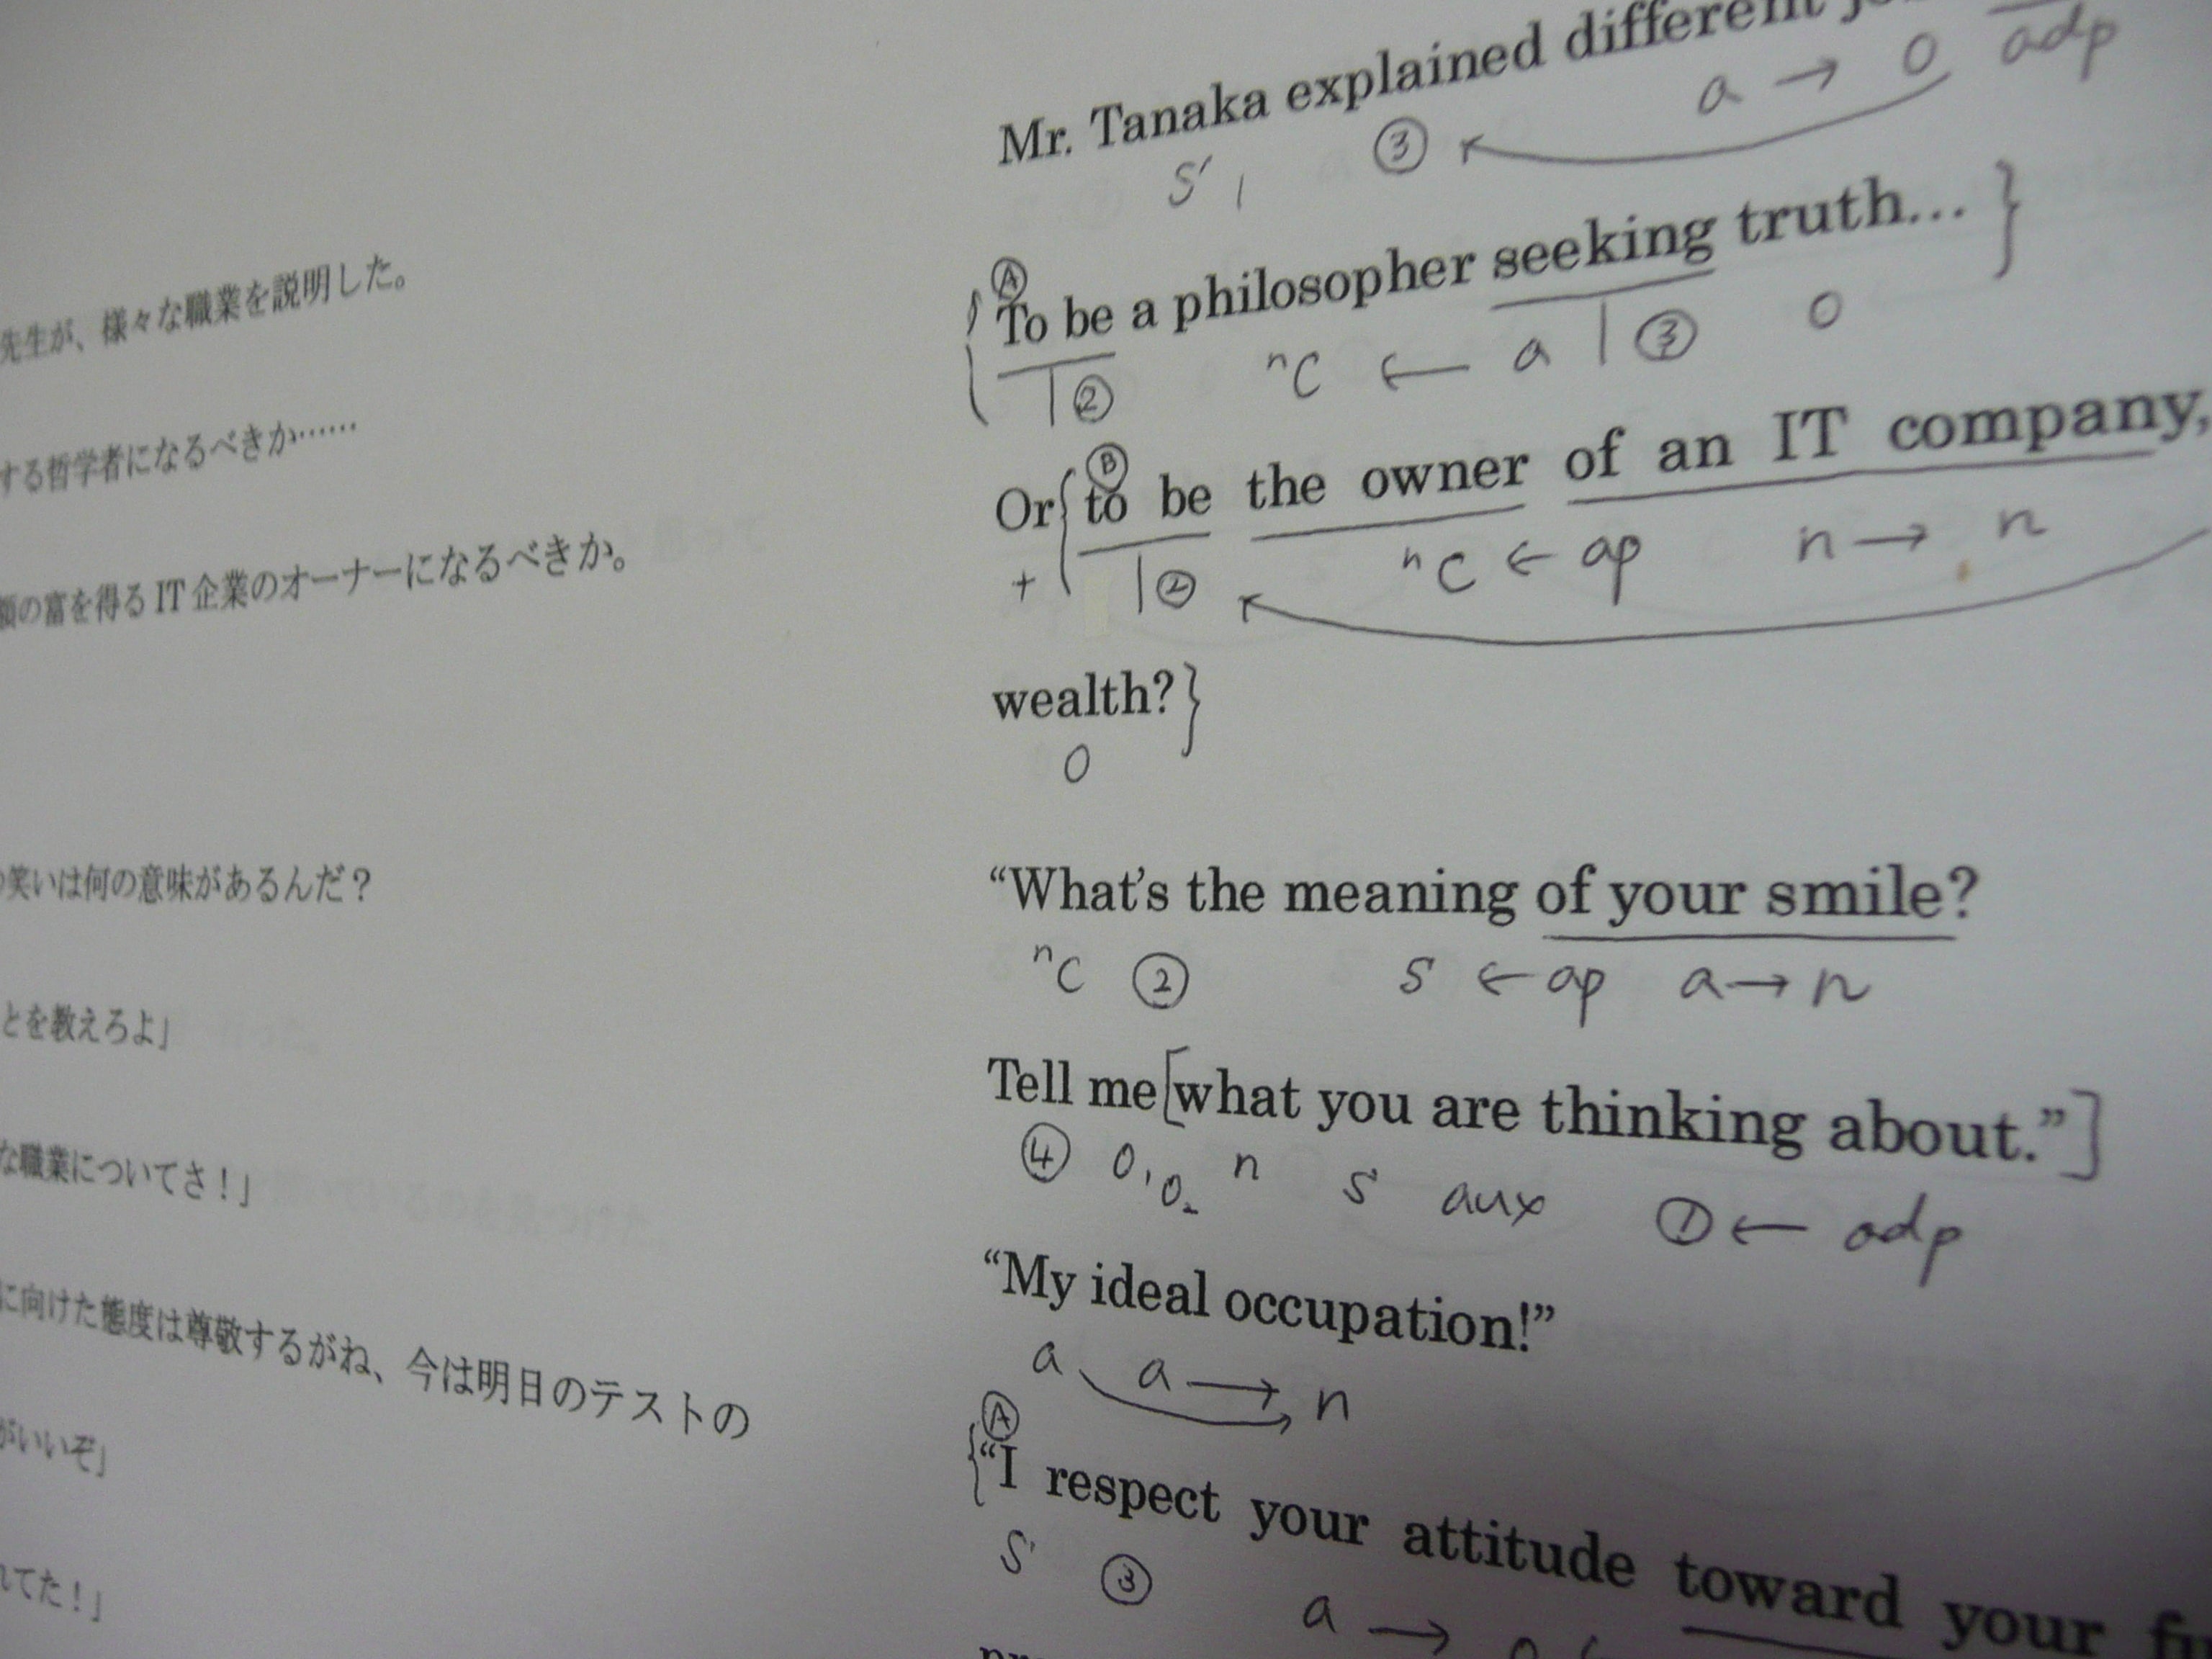 先生が、様々な職業を説明した。
する哲学者になるべきか……
額の富を得るIT企業のオーナーになるべきか。
笑いは何の意味があるんだ？
とを教えろよ」
な職業についてさ！」
に向けた態度は尊敬するがね、今は明日のテストの
がいいぞ」
れてた！」
Mr. Tanaka explained different
S ③ a → O adp
Ⓐ
{ To be a philosopher seeking truth... }
② nC ← a ③ O
Ⓑ
Or { to be the owner of an IT company,
+ ② nC ← ap n → n
wealth? }
O
“What’s the meaning of your smile?
nC ② S ← ap a → n
Tell me [ what you are thinking about.” ]
④ O₁ O₂ n S aux ① ← adp
“My ideal occupation!”
a a → n
Ⓐ
{ “I respect your attitude toward your
S ③ a →